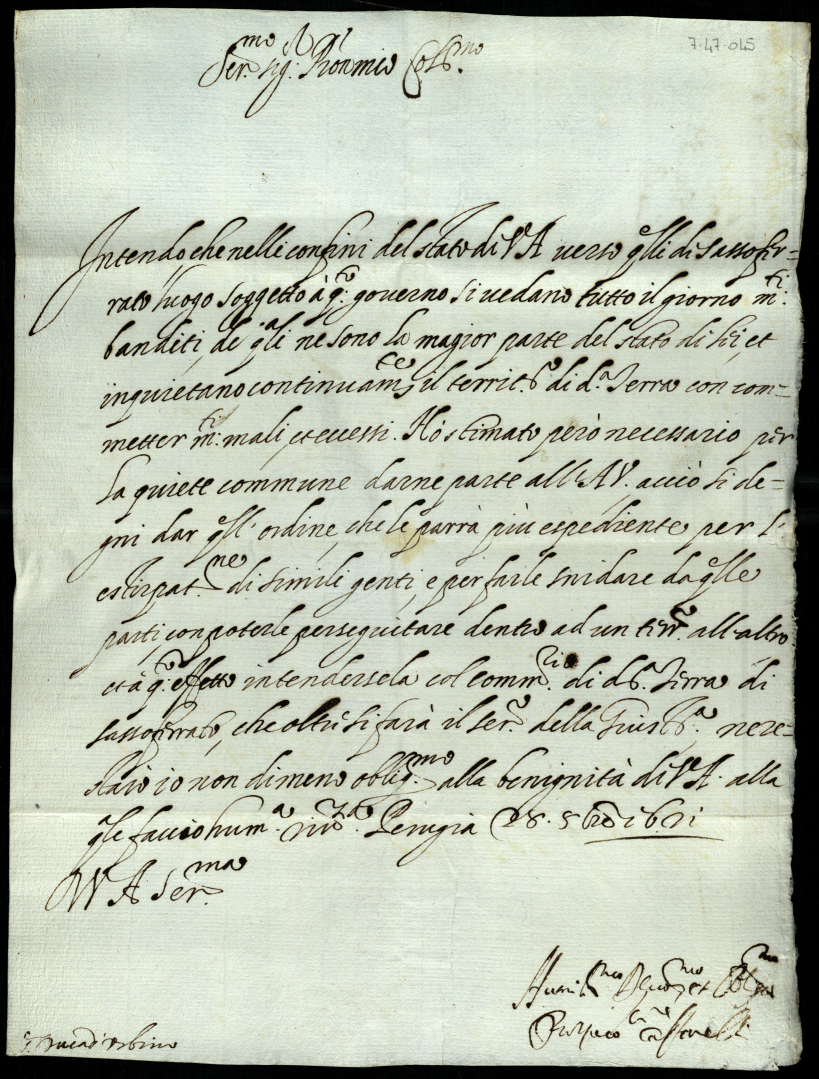 7-47-045
Ser.mo Sig.r Pron mio Col.mo
Intendo che nelli confini del stato di V A verso q̃lli di Sassofer=
rato luogo soggetto à q.to governo si vedano tutto il giorno m.ti
banditi, de q.ali ne sono la magior parte del stato di lei, et
inquietano continuam.te il territ.o di d.a Terra con com=
metter m.ti mali, et eccessi. Hò stimato però necessario per
la quiete commune darne parte all' A V. acciò si de=
gni dar q̃ll' ordine, che le parrà più espediente per l'
estirpat.ne di simili genti, e per farle snidare da q̃lle
parti con poterle perseguitare dentro ad un terr.o all'altro
et à q.to effetto intendersela col comm.rio di d.a Terra di
Sassoferrato, che oltre si farà il ser.o della Giust.a nere=
starò io non dimeno oblig.mo alla benignità di V A. alla
q̃le faccio hum.a riv.za Perugia 28. 1621
D V A Ser.ma
Humil.mo Devo.mo et Oblig.mo
Duca d'Urbino